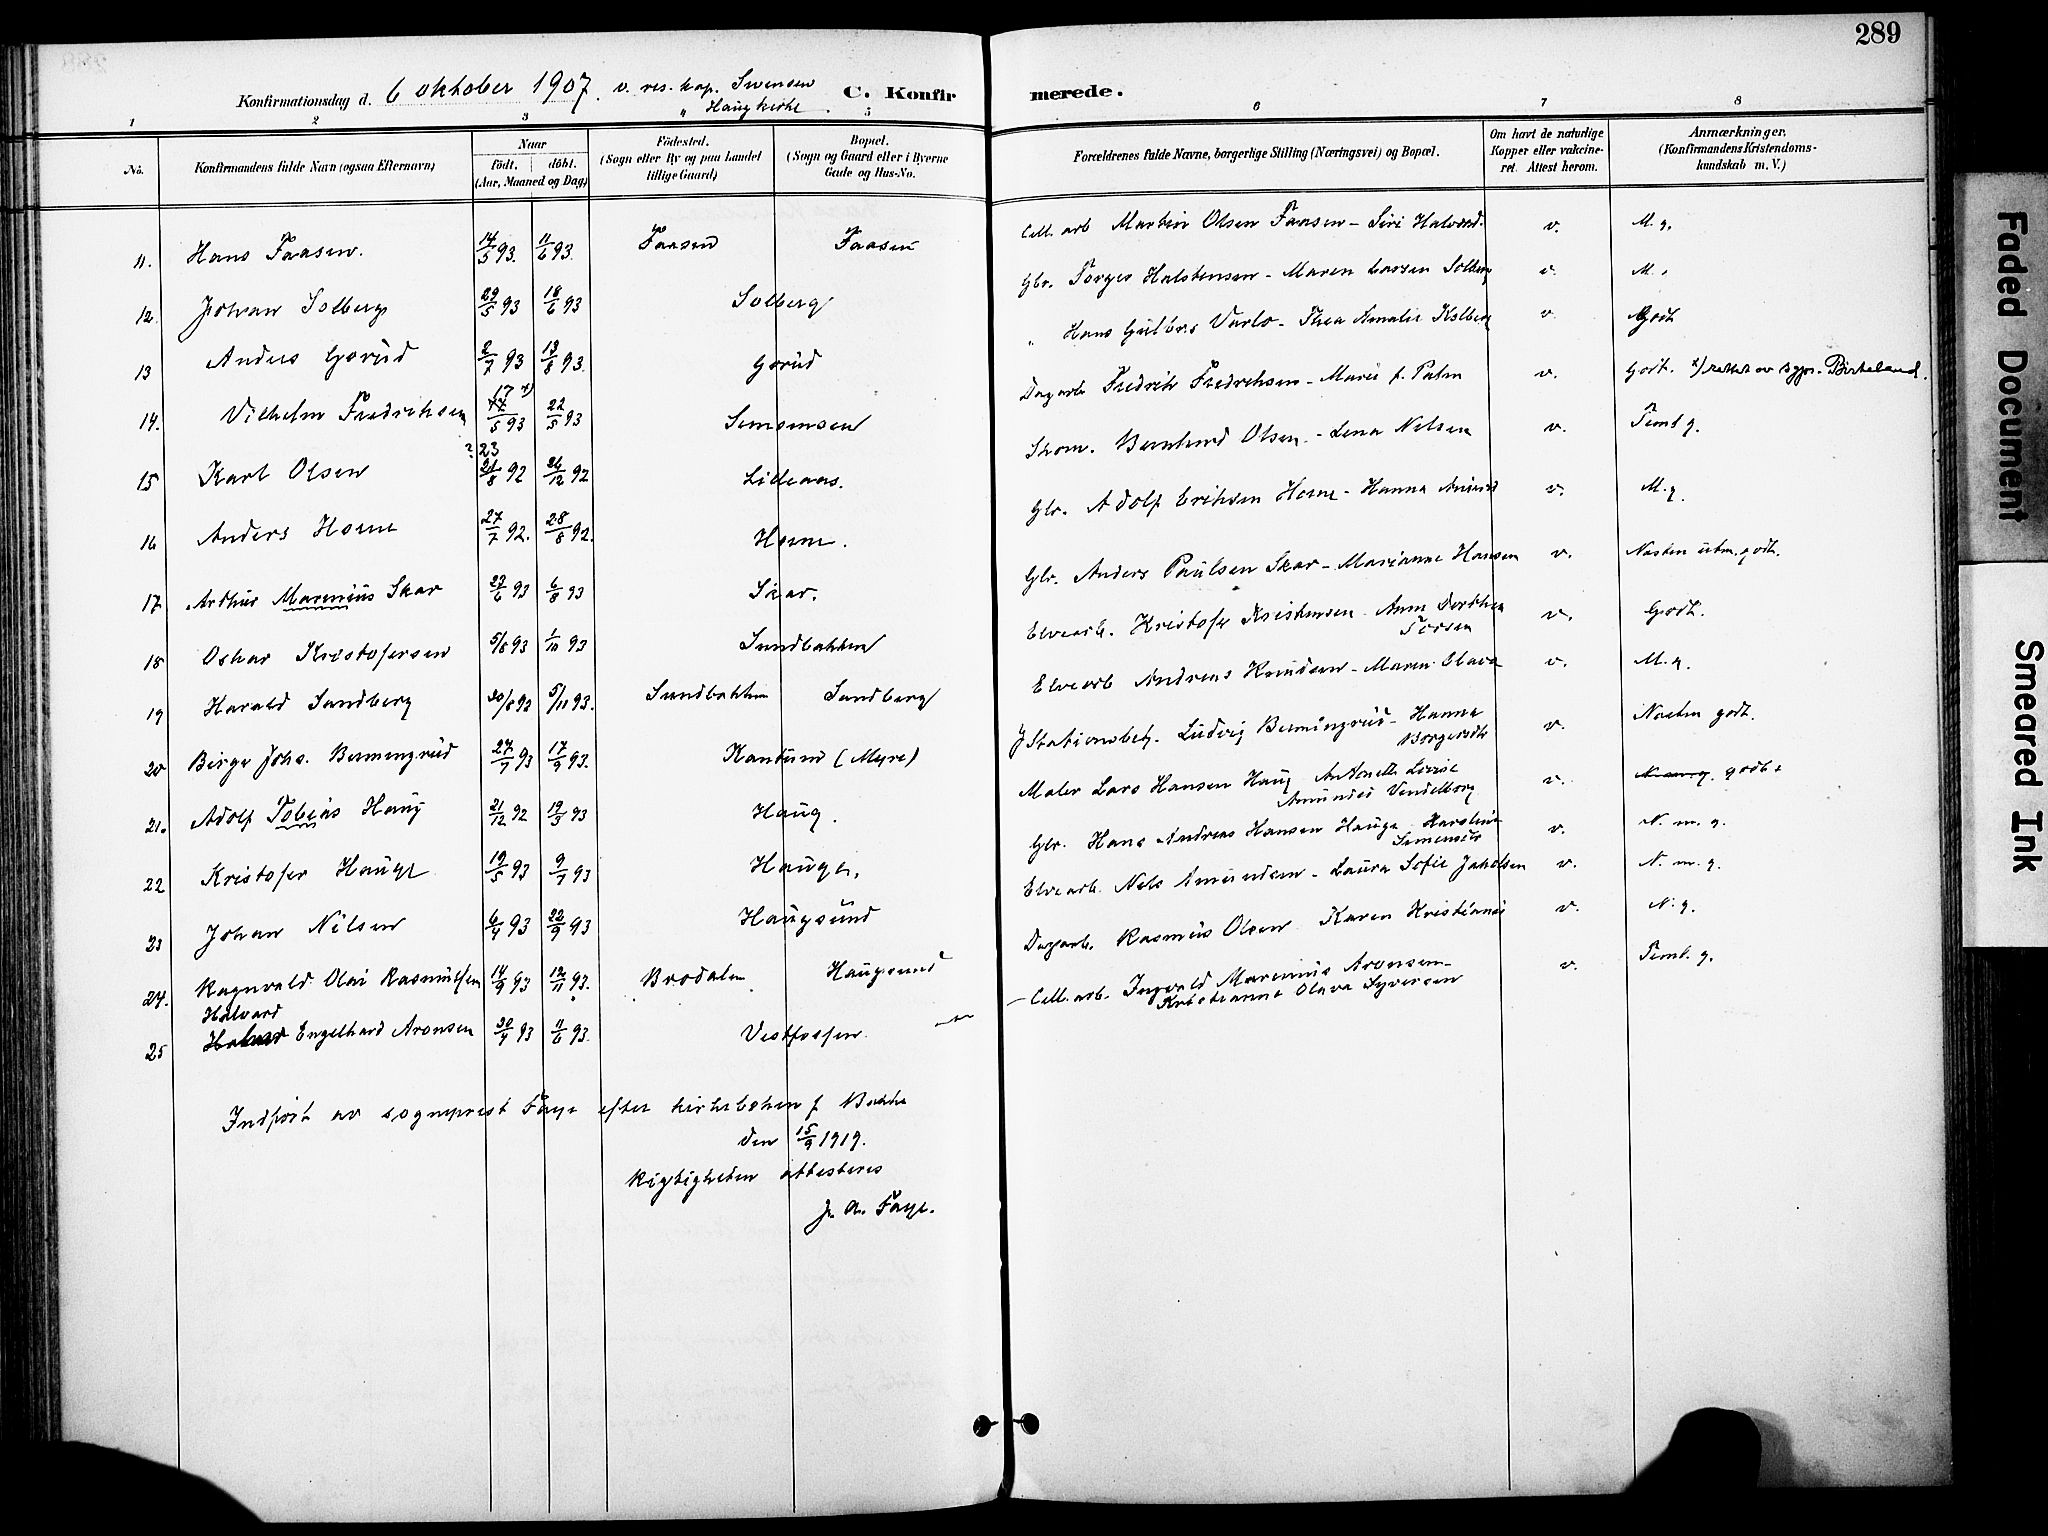 289
Konfirmationsdag d. 6 oktober 1907. v. res. kap. Svensen
" Haug kirke.
C. Konfirmerede.
1 2 3 5 6 7 8
No.
Konfirmandens fulde Navn (ogsaa Efternavn)
Naar
født. døbt.
(Aar, Maaned og Dag)
Fødested.
(Sogn eller By og paa Landet tillige Gaard)
Bopæl.
(Sogn og Gaard eller i Byerne Gade og Hus-No.
Forældrenes fulde Navne, borgerlige Stilling (Næringsvei) og Bopæl.
Om havt de naturlige Kopper eller vakcineret. Attest herom.
Anmærkninger.
(Konfirmandens Kristendomskundskab m. V.)
11. Hans Faasen. 14/5 93. 11/6 93. Faasen Faasen Cell. arb Martin Olsen Faasen - Siri Halvorsd. v. M. g.
12. Johan Solberg 29/5 93 18/6 93 Solberg Gbr. Torger Halstensen - Maren Larsen Solberg v. M.
13 Anders Gorud 2/7 93 13/8 93. Gorud " Hans Gulbrs Varlo - Thea Amalie v. Godt
14. Vilhelm Fredriksen 17 x) /5 93 22/5 93 Semsmoen Dagarb Fredrik Fredriksen - Marie f. Palm v. Godt. x) rettet av sgpr. Birkeland.
15 Karl Olsen ? 23 21/8 92 26/12 92 Lilleaas. Skom. Bernhard Olsen - Lena Nilsen v. Teml g.
16 Anders Horne 27/7 92. 28/8 92. Horne. Gbr. Adolf Eriksen Horne - Hanna v. M. g.
17. Arthur Marenius Skar 27/6 93 6/8 93 Skar. Gbr. Anders Paulsen Skar - Marianne Hansen v. Næsten utm. godt.
18 Oskar Kristofersen 5/8 93 1/10 93 Sundbakken Elvearb. Kristofer Kristensen - Anne Dorthea v. Godt.
19 Harald Sandberg 30/8 92 5/11 93. Sundbakken Sandberg Elvearb Andreas Knudsen - Maren Olava v. M. g.
20 Birger Johs. Bermingrud 27/7 93 17/9 93. Kantum (Myre) Stationsbetj. Ludvig Bermingrud - Hanna Borgersdtr v. Næsten godt.
21. Adolf Tobias Haug 21/12 92 19/3 93 Haug. Maler Lars Hansen Haug Antonette Lovise Amundsd Vendelborg v. godt
22 Kristofer Hauge 19/5 93 9/7 93 Hauger. Gbr. Hans Andreas Hansen Hauge Karoline Simensdtr v. N. m. g.
23 Johan Nilsen 6/4 93 22/9 93 Haugsund Elvearb. Nils Amundsen - Laura Sofie Jakobsen v. N. m. g.
24. Ragnvald Olai Rasmussen 14/9 93 12/11 93. Brodalen Haugsund Dagarb. Rasmus Olsen Karen Kristianse v. N. g.
25 Halvard Engelhard Aronsen 30/4 93 11/6 93. Vestfossen. Cell. arb. Ingvald Marenius Aronsen - Kristianne Olava Syversen v. Teml. g.
Indført av sogneprest Faye efter kirkeboken f Bakke
den 15/9 1919.
Rigtigheten attesteres
J. A. Faye.
Faded Document
Smeared Ink